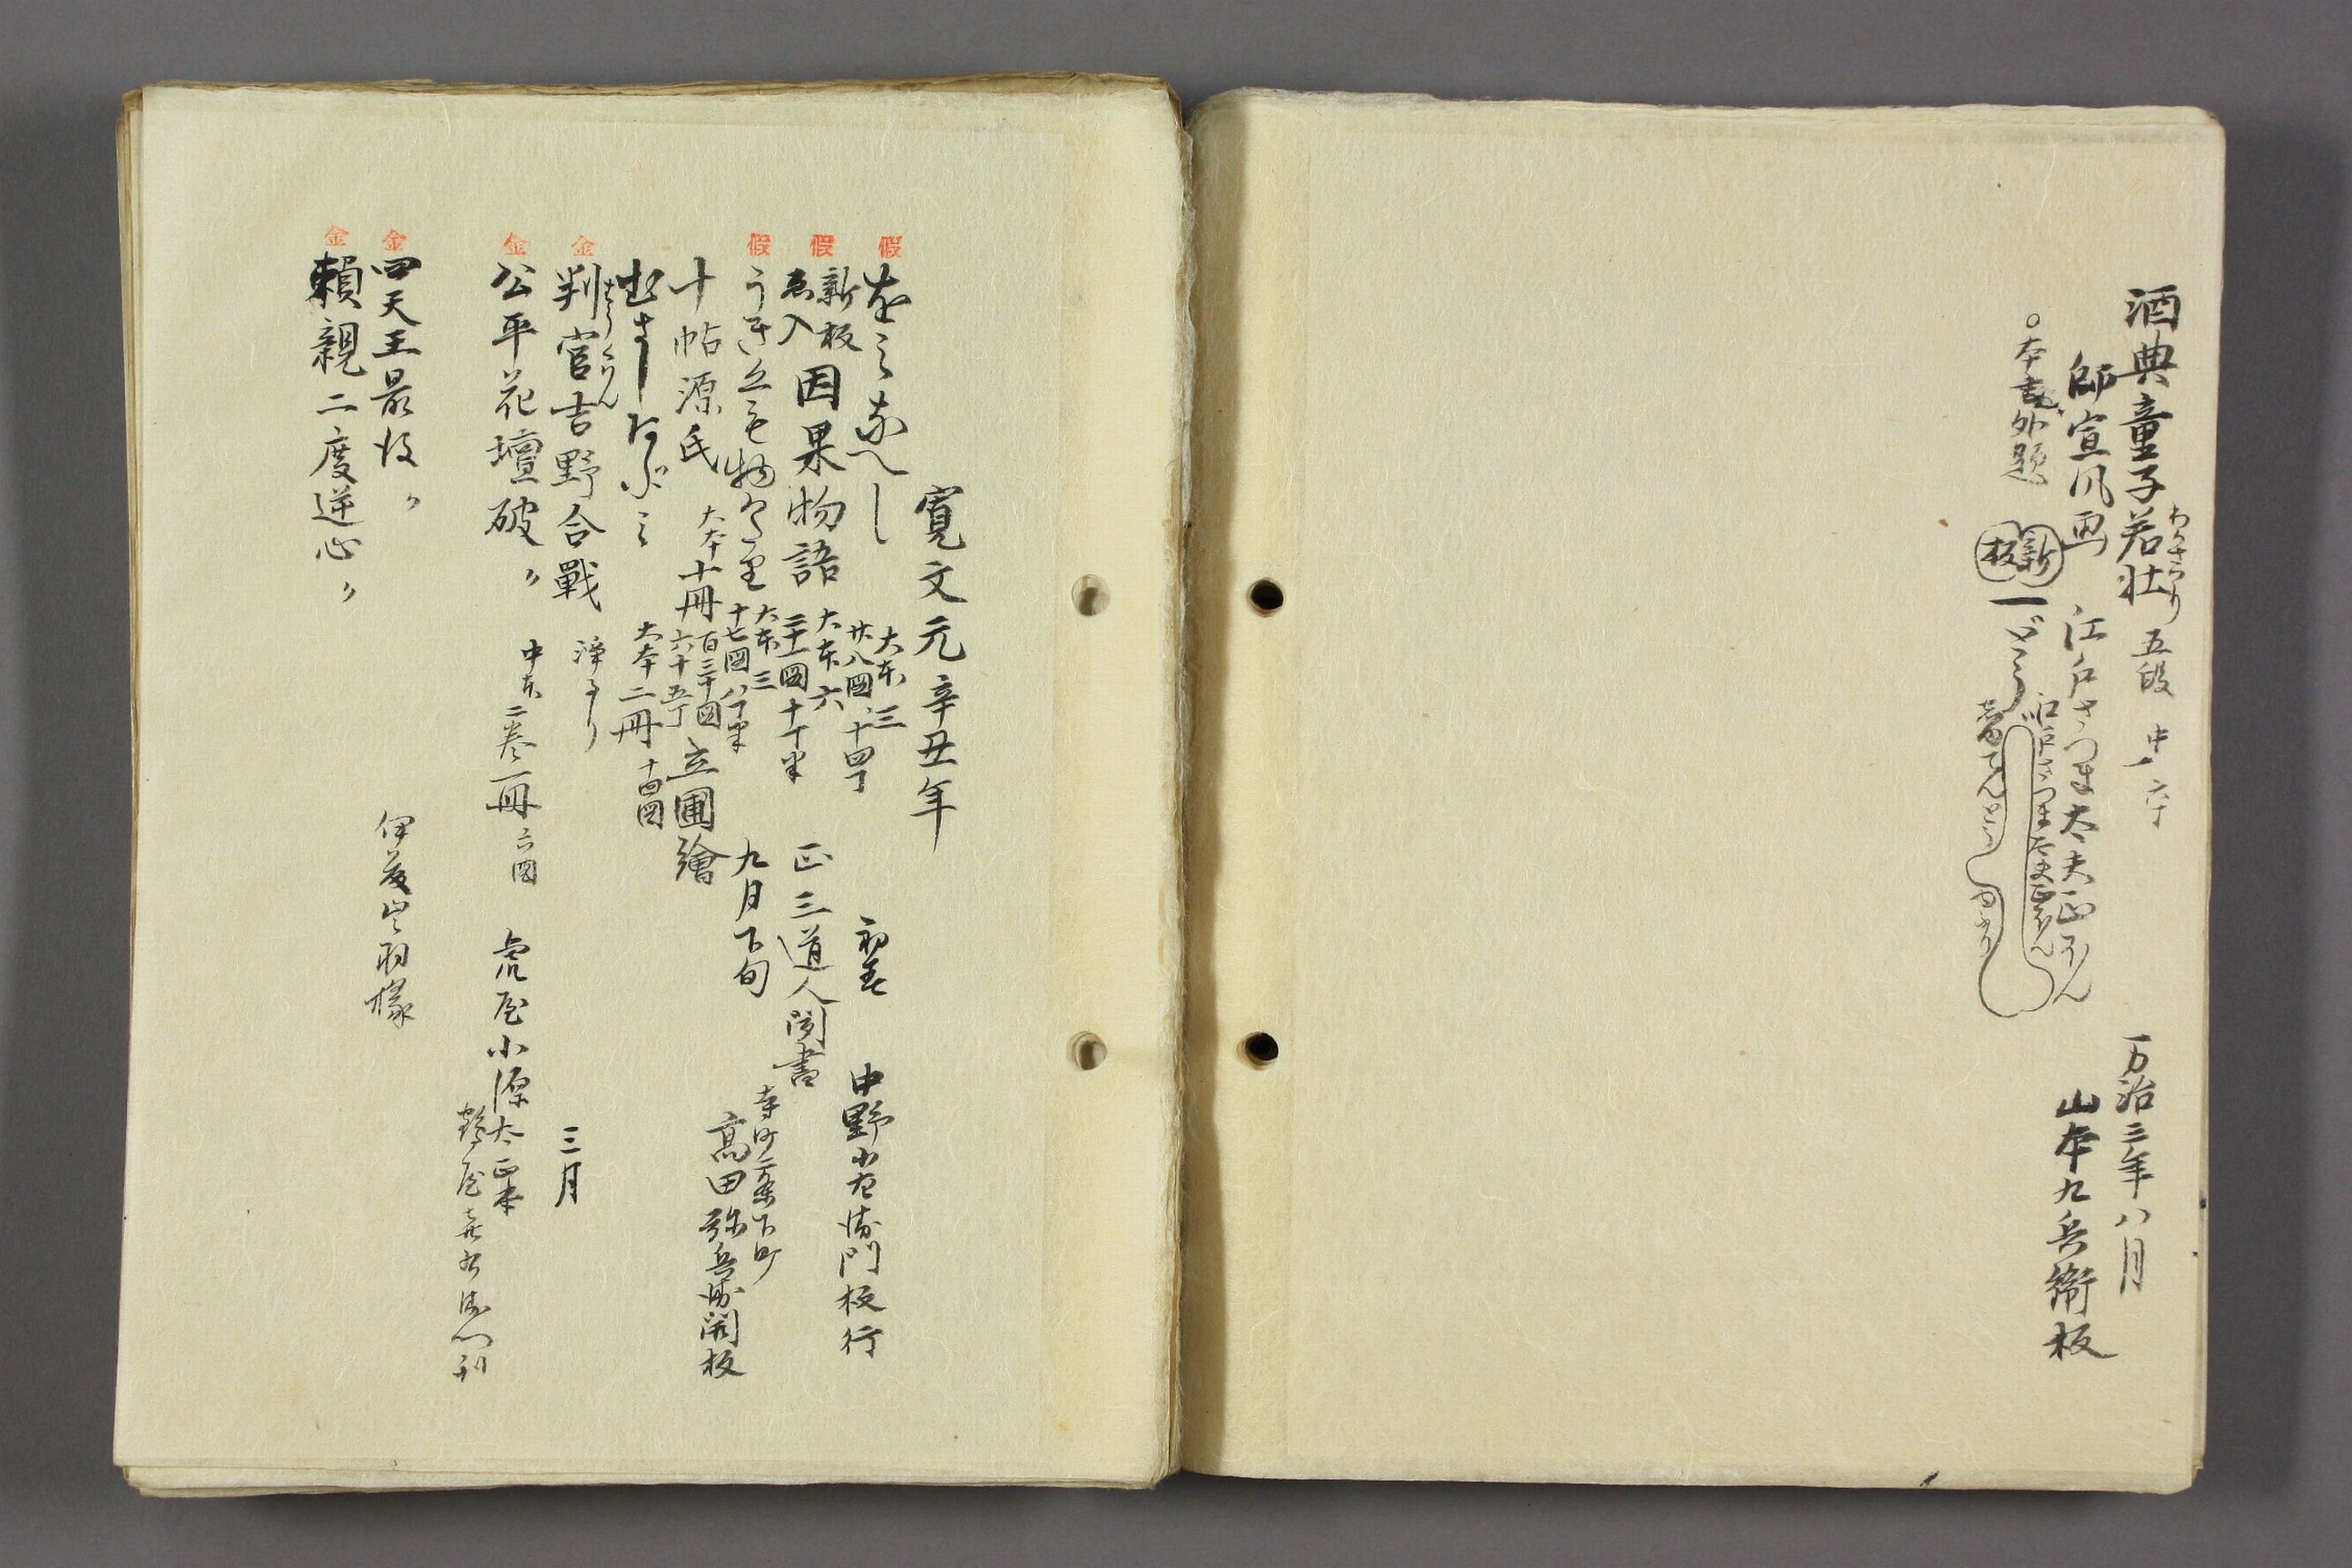 酒典童子若壮 五段 中一 六丁
わかさかり
万治三年八月
師宣風画 江戸さつま太夫正ほん
山本九兵衛板
○本書外題 新板
江戸さつま太夫正ほん
寛文元辛丑年
假 をみなへし 大本三
廿八図、十四丁
初春 中野小左衛門板行
假 新板ゑ入 因果物語 大本六
二十一図十丁半
正三道人聞書
假 うき雲物語 大本三
十七図八丁半
九月下旬 寺町二条下町
高田弥兵衛開板
十帖源氏 大本十冊 百三十図
六十五丁
立圃繪
むさしあぶみ 大本二冊 十四図
金 判官吉野合戰 浄るり 三月
はうぐわん
金 公平花壇破〃 中本 二巻一冊 六図 虎屋小源太正本
鶴屋喜右衛門刊
金 四天王最後〃 伊藤出羽掾
金 頼親二度逆心〃